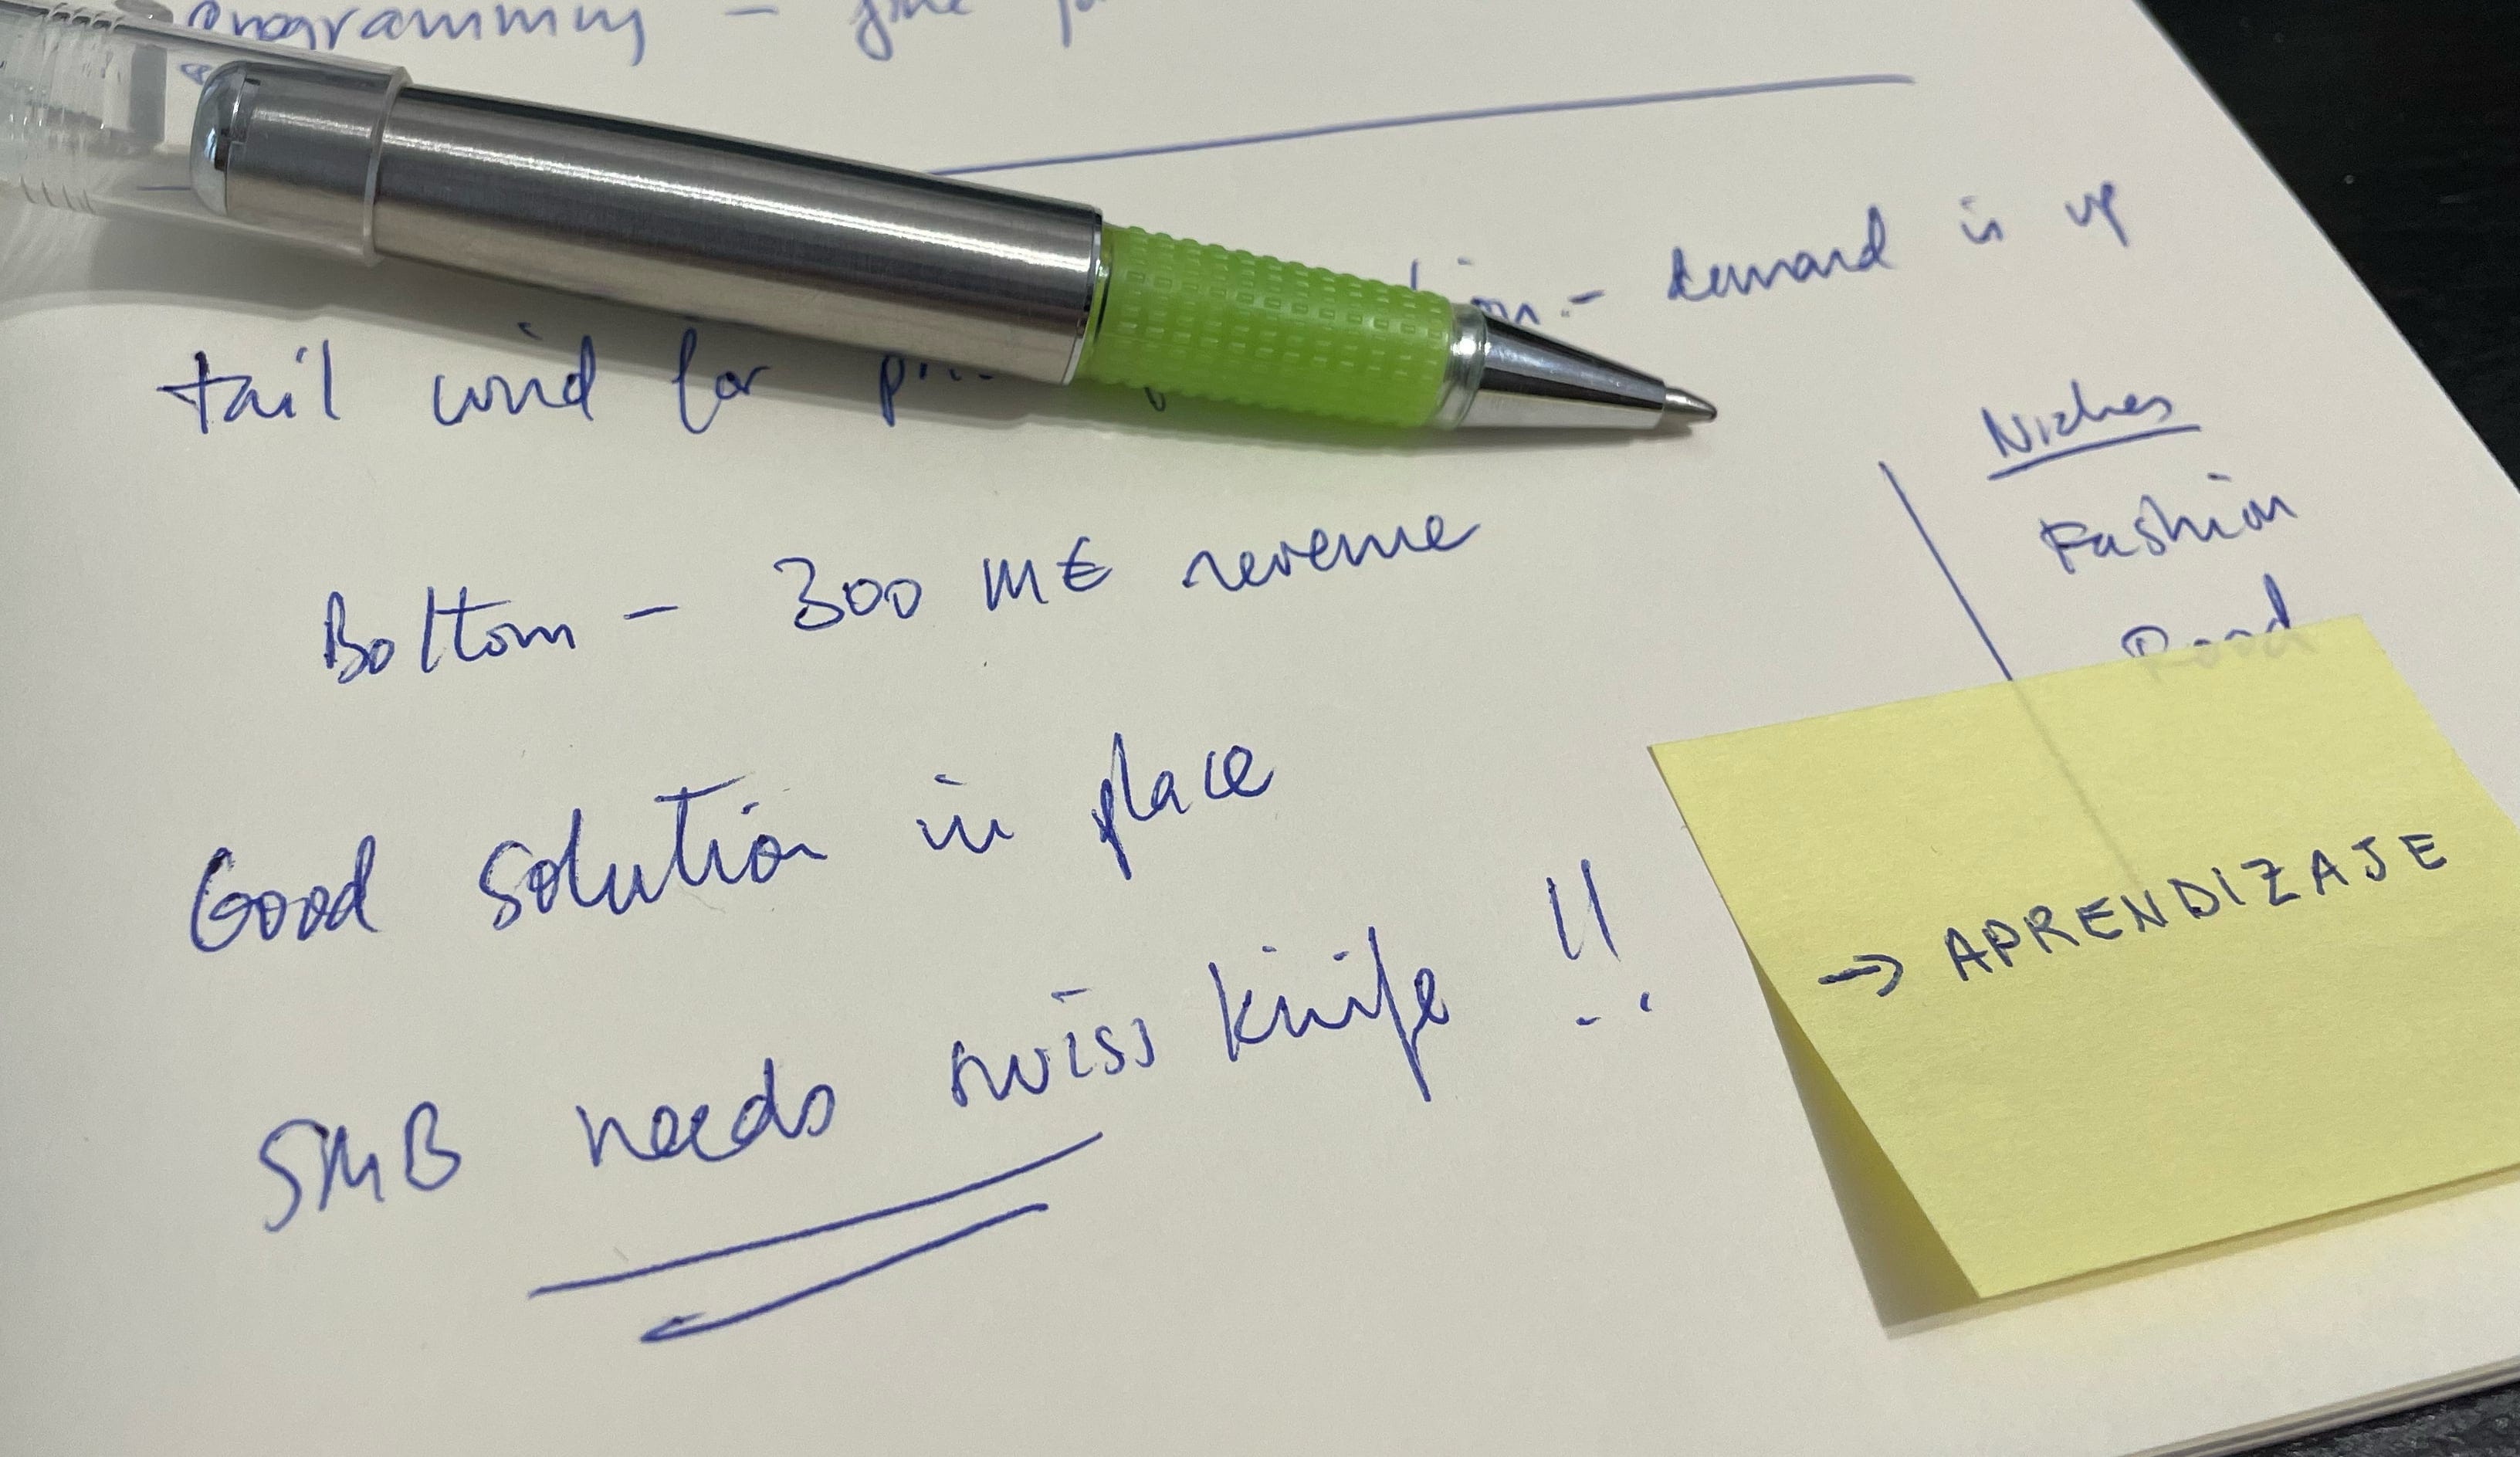 programming -
tail wind for - demand is up
Niches
Fashion
Bottom - 300 M€ revenue
Good solution in place
SMB needs swiss knife !!
→ APRENDIZAJE